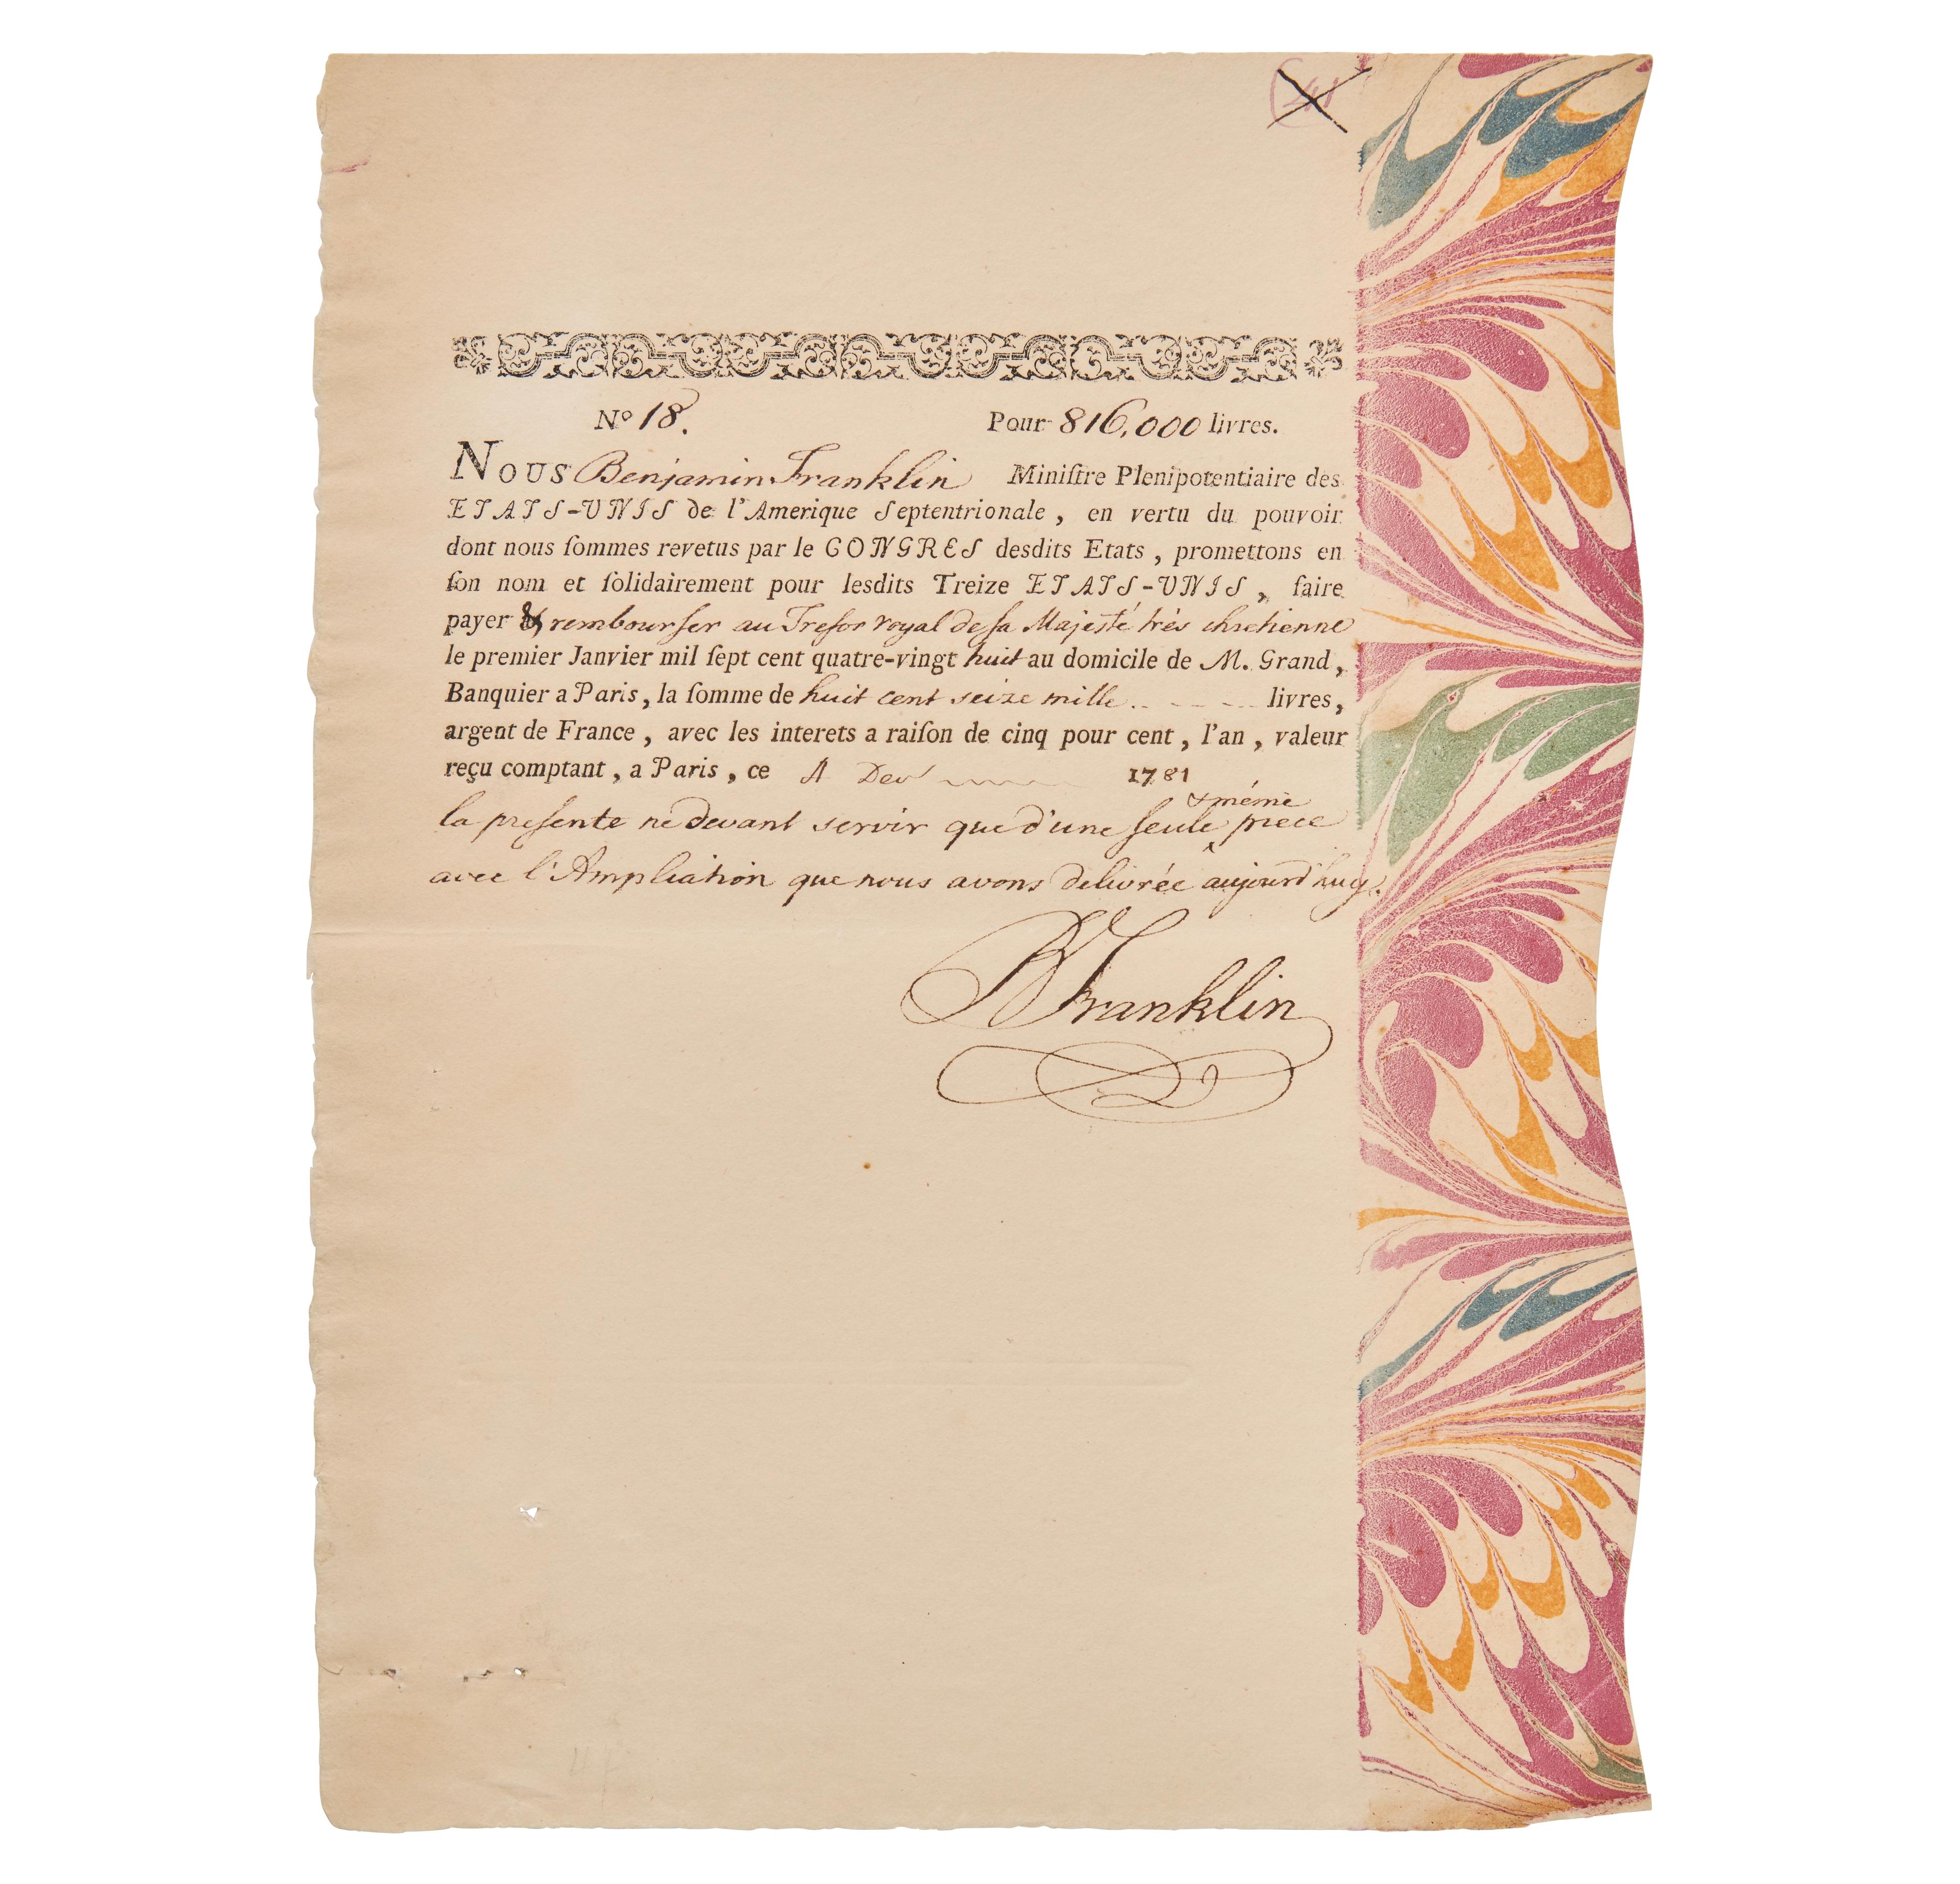 Nº 18. Pour 816,000 livres.
NOUS Benjamin Franklin Miniſtre Plenipotentiaire des
ETATS-UNIS de l'Amerique Septentrionale, en vertu du pouvoir
dont nous ſommes revetus par le CONGRES desdits Etats, promettons en
ſon nom et ſolidairement pour lesdits Treize ETATS-UNIS, faire
payer & rembourſer au Treſor royal de ſa Majesté trés chretienne
le premier Janvier mil ſept cent quatre-vingt huit au domicile de M. Grand,
Banquier a Paris, la ſomme de huit cent seize mille livres,
argent de France, avec les interets a raiſon de cinq pour cent, l'an, valeur
reçu comptant, a Paris, ce 1781
& méme
la preſente ne devant servir que d'une ſeule piece
avec l'Ampliation que nous avons delivrée aujourd'huy.
B Franklin